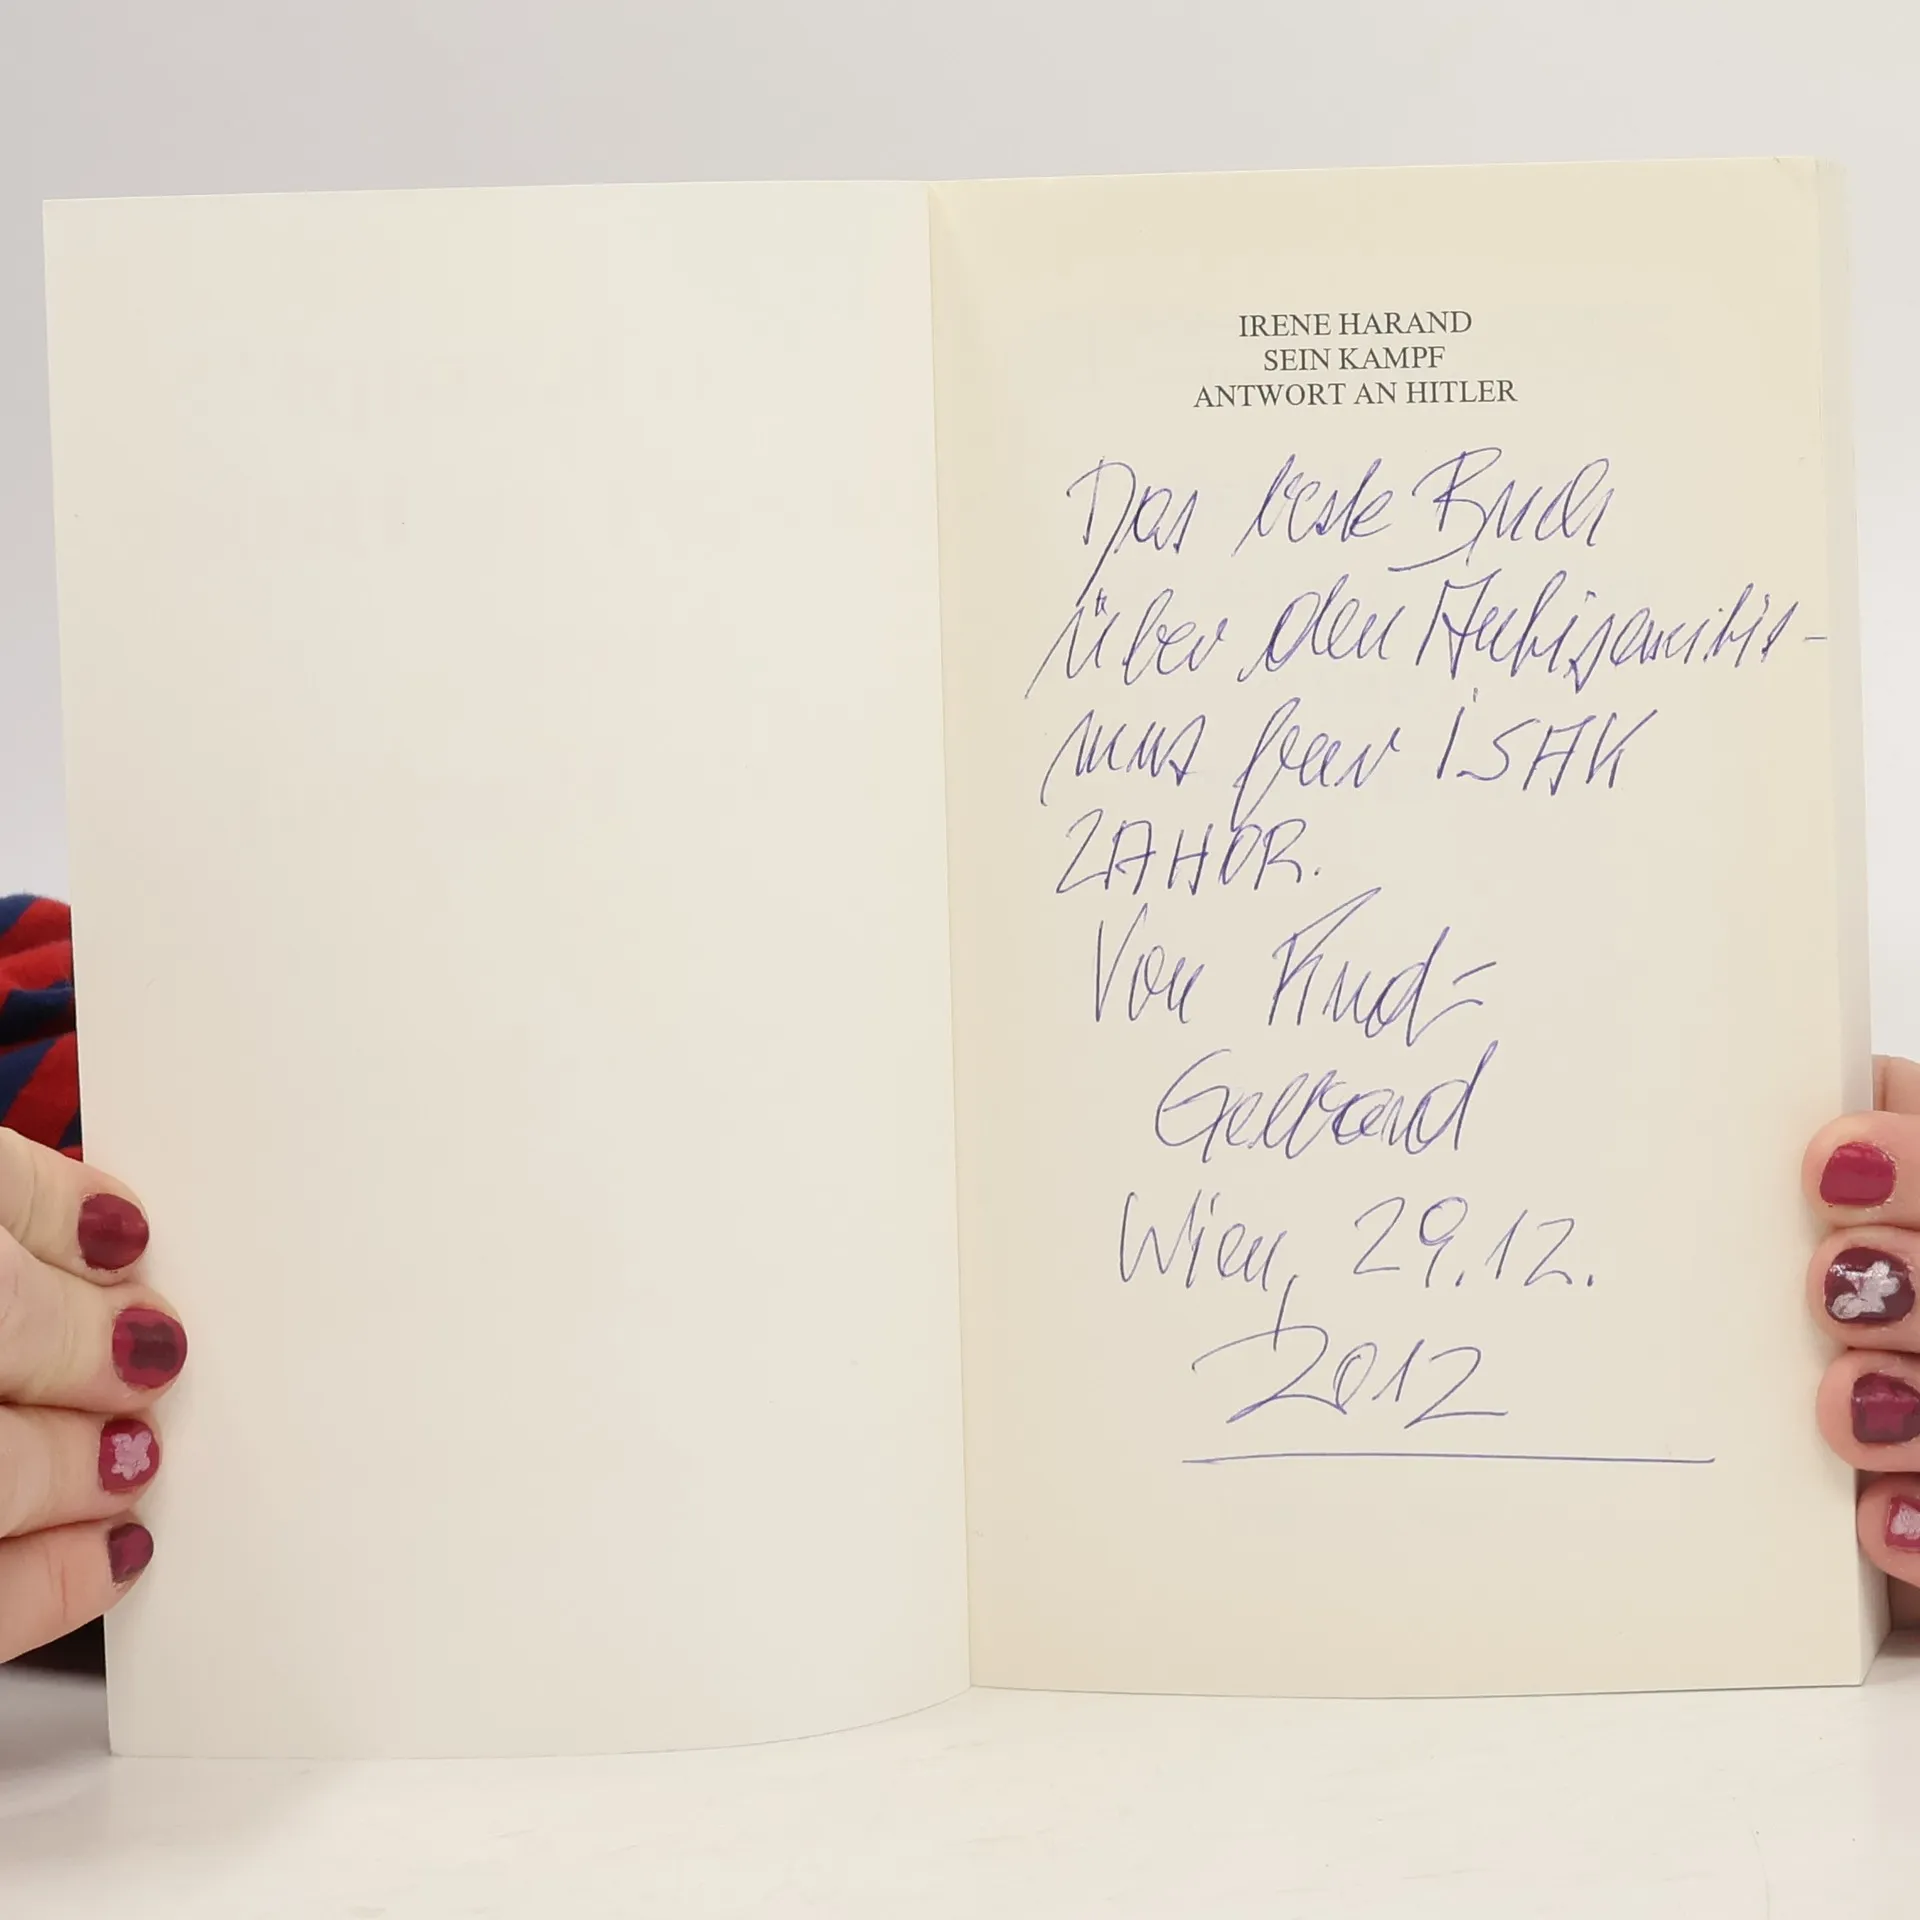 IRENE HARAND
SEIN KAMPF
ANTWORT AN HITLER
Das beste Buch
über den Antisemitis-
mus
ISAK
ZAHOR.
Von
Wien, 29.12.
2012